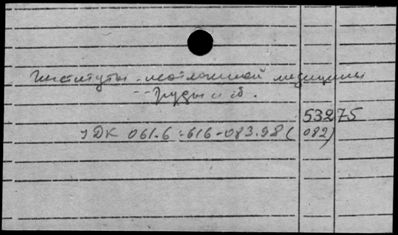 Институты неотложной медицины
-- Труды и сб.
53275
УДК 061.6:616-083.98(082)